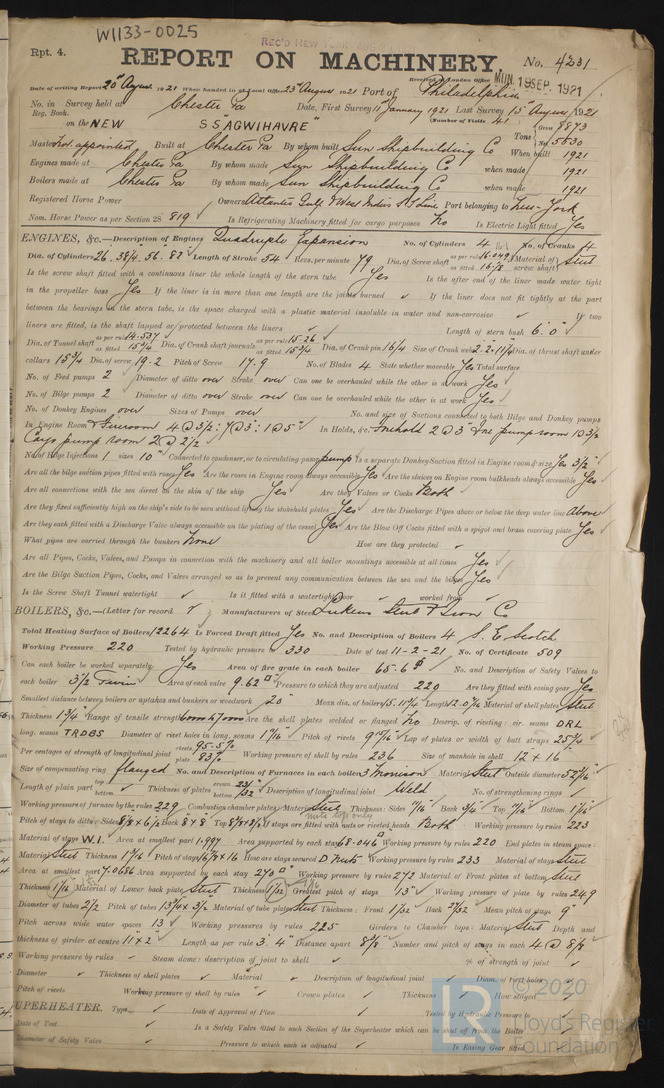 W1133-0025
Rpt. 4.
REC'D NEW YORK
REPORT ON MACHINERY. No. 4231
Received at London Office MON. 19 SEP. 1921
Date of writing Report 20 August 1921 When handed in at Local Office 23 August 1921 Port of Philadelphia
No. in Survey held at Chester Pa Date, First Survey 11 January 1921 Last Survey 15 August 1921
Reg. Book. (Number of Visits 41
on the NEW SS "AGWIHAVRE" Tons Gross 8873 Net 5530
Master Not appointed Built at Chester Pa By whom built Sun Shipbuilding Co When built 1921
Engines made at Chester Pa By whom made Sun Shipbuilding Co when made 1921
Boilers made at Chester Pa By whom made Sun Shipbuilding Co when made 1921
Registered Horse Power Owners Atlantic Gulf & West Indies S S Line Port belonging to New-York
Nom. Horse Power as per Section 28 819 Is Refrigerating Machinery fitted for cargo purposes No Is Electric Light fitted Yes
ENGINES, &c.—Description of Engines Quadruple Expansion No. of Cylinders 4 No. of Cranks 4
Dia. of Cylinders 26. 38¼. 56. 82" Length of Stroke 54 Revs. per minute 79 Dia. of Screw shaft as per rule 16.049 as fitted 16⅞ Material of screw shaft Steel
Is the screw shaft fitted with a continuous liner the whole length of the stern tube Yes Is the after end of the liner made water tight
in the propeller boss Yes If the liner is in more than one length are the joints burned ✓ If the liner does not fit tightly at the part
between the bearings in the stern tube, is the space charged with a plastic material insoluble in water and non-corrosive ✓ If two
liners are fitted, is the shaft lapped or protected between the liners ✓ Length of stern bush 6'. 0"
Dia. of Tunnel shaft as per rule 14.537 as fitted 15¾ Dia. of Crank shaft journals as per rule 15.26 as fitted 15¾ Dia. of Crank pin 16¼ Size of Crank webs Dia. of thrust shaft under
collars 15¾ Dia. of screw 19.2 Pitch of Screw 17.9 No. of Blades 4 State whether moveable Yes Total surface
No. of Feed pumps 2 Diameter of ditto over Stroke over Can one be overhauled while the other is at work Yes
No. of Bilge pumps 2 Diameter of ditto over Stroke over Can one be overhauled while the other is at work Yes
No. of Donkey Engines over Sizes of Pumps over No. and size of Suctions connected to both Bilge and Donkey pumps
In Engine Room & Fireroom 4@3½: 7@3: 1@5" In Holds, &c. Forehold 2@3" Fore pump room 1@3½
Cargo pump room 2@2½
No. of Bilge Injections 1 sizes 10" Connected to condenser, or to circulating pump pump Is a separate Donkey Suction fitted in Engine room & size Yes 3½"
Are all the bilge suction pipes fitted with roses Yes Are the roses in Engine room always accessible Yes Are the sluices on Engine room bulkheads always accessible Yes
Are all connections with the sea direct on the skin of the ship Yes Are they Valves or Cocks Both
Are they fixed sufficiently high on the ship's side to be seen without lifting the stokehold plates Yes Are the Discharge Pipes above or below the deep water line Above
Are they each fitted with a Discharge Valve always accessible on the plating of the vessel Yes Are the Blow Off Cocks fitted with a spigot and brass covering plate Yes
What pipes are carried through the bunkers None How are they protected ✓
Are all Pipes, Cocks, Valves, and Pumps in connection with the machinery and all boiler mountings accessible at all times Yes
Are the Bilge Suction Pipes, Cocks, and Valves arranged so as to prevent any communication between the sea and the bilges Yes
Is the Screw Shaft Tunnel watertight ✓ Is it fitted with a watertight door ✓ worked from ✓
BOILERS, &c.—(Letter for record ✓ Manufacturers of Steel Lukens Steel & Iron Co
Total Heating Surface of Boilers 12264 Is Forced Draft fitted Yes No. and Description of Boilers 4 S. E. Scotch
Working Pressure 220 Tested by hydraulic pressure to 330 Date of test 11-2-21 No. of Certificate 509
Can each boiler be worked separately Yes Area of fire grate in each boiler 65.6 No. and Description of Safety Valves to
each boiler 3½ Twin Area of each valve 9.62 Pressure to which they are adjusted 220 Are they fitted with easing gear Yes
Smallest distance between boilers or uptakes and bunkers or woodwork 20" Mean dia. of boilers 15.11¼ Length 12.0 Material of shell plates Steel
Thickness 1¾ Range of tensile strength Are the shell plates welded or flanged No Descrip. of riveting: cir. seams DRL
long. seams TRDBS Diameter of rivet holes in long. seams 1⅞ Pitch of rivets Lap of plates or width of butt straps 25¼
Per centages of strength of longitudinal joint rivets 95.5% plate 83% Working pressure of shell by rules 236 Size of manhole in shell 12 x 16
Size of compensating ring flanged No. and Description of Furnaces in each boiler 3 Morison Material Steel Outside diameter
Length of plain part top bottom Thickness of plates crown bottom Description of longitudinal joint Weld No. of strengthening rings
Working pressure of furnace by the rules 229 Combustion chamber plates: Material Steel Thickness: Sides Back Top Bottom
nuts top only
Pitch of stays to ditto: Sides Back 8 x 8 Top If stays are fitted with nuts or riveted heads Both Working pressure by rules 223
Material of stays W.I. Area at smallest part 1.994 Area supported by each stay 68.046 Working pressure by rules 220 End plates in steam space:
Material Steel Thickness Pitch of stays How are stays secured D Nuts Working pressure by rules 233 Material of stays Steel
Area at smallest part 7.0686 Area supported by each stay 270 Working pressure by rules 272 Material of Front plates at bottom Steel
Thickness Material of Lower back plate Steel Thickness Greatest pitch of stays 13" Working pressure of plate by rules 249
Diameter of tubes 2½ Pitch of tubes Material of tube plates Steel Thickness: Front Back Mean pitch of stays 9"
Pitch across wide water spaces 13 Working pressures by rules 225 Girders to Chamber tops: Material Steel Depth and
thickness of girder at centre 11 x 2 Length as per rule 3'. 4" Distance apart Number and pitch of stays in each
Working pressure by rules ✓ Steam dome: description of joint to shell ✓ % of strength of joint ✓
Diameter ✓ Thickness of shell plates ✓ Material ✓ Description of longitudinal joint ✓ Diam. of rivet holes
Pitch of rivets Working pressure of shell by rules ✓ Crown plates ✓ Thickness ✓ How stayed
UPERHEATER. Type ✓ Date of Approval of Plan ✓ Tested by Hydraulic Pressure to
Date of Test ✓ Is a Safety Valve fitted to each Section of the Superheater which can be shut off from the Boiler
Diameter of Safety Valve ✓ Pressure to which each is adjusted ✓ Is Easing Gear fitted
LR © 2020
Lloyd's Register
Foundation